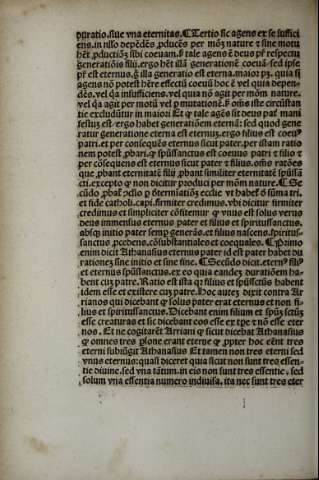 duratio. siue vna eternitas. ¶ Tertio sic agens ex se suffici
ens. in nllo depēdēs ꝓducēs per mōꝫ nature ⁊ sine motu
hēt ꝓductiōꝫ sibi coeuam. s̄ tale agens ē deus pr̄ respectu
generatiōis filii. ergo hēt illā generationē coeuā. sed ipse
pr̄ est eternus. ḡ illa generatio est eterna. maior pꝫ. quia si
agens nō potest hr̄e effectū coeuū hoc ē vel quia depen-
dēs. vel q̄a insufficiens. vel quia nō agit per mom̄ nature.
vel q̄a agit per motū vel ꝑ mutationē. s̄ om̄s iste circūstan
tie excluduntur in maiori Et ꝙ tale agēs sit deus pat̄ mani
festuꝫ est. ergo habet generationem eternā: sed quod gene
ratur generatione eterna est eternuꝫ. ergo filius est coeuꝰ
patri. et per consequēs eternus sicut pater. per istam ratio
nem potest ꝓbari. ꝙ spūssanctus est coeuus patri ⁊ filio ⁊
per cōsequens est eternus sicut pater ⁊ filius. om̄s ratōes
que ꝓbant eternitatē filij. ꝓbant similiter eternitatē spūssā
cti. excepto ꝙ non dicitur produci per mōm nature. ¶ Se
cūdo ꝓbat̄ ꝓclo ꝑ determiatiōꝫ ecclie vt habet̄ ō sūma tri.
et fide catholi. capi. firmiter credimus. vbi dicitur firmiter
credimus et simpliciter cōfitemur ꝙ vnus est solus verus
deus immensus eternus pater et filius et spiritussanctus.
absqꝫ initio pater semꝑ generās. et filius nascens. spiritus-
sanctus ꝓcedens. cōsubstantiales et coequales. ¶ Primo
enim dicit Athanasius eternus pater id est pater habet du
rationeꝫ sine initio et sine fine. ¶ Secūdo dicit. eternꝰ filiꝰ
et eternus spūssanctus. ex eo quia eandeꝫ durationēm ha-
bent cuꝫ patre. Ratio est ista ꝙ filius et spūssctūs habent
idem esse et existere cuꝫ patre. Hoc auteꝫ dixit contra Ar
rianos qui dicebant ꝙ solus pater erat eternus et non fi-
lius et spiritussanctus. Dicebant enim filium et spūꝫ sctūꝫ
esse creaturas et sic dicebant eos esse ex tꝑe ⁊ nō esse eter
nos. Et ne cogitarēt Arriani ꝙ sicut dicebat Athanasius
ꝙ omnes tres ꝑsone erant eterne ꝙ ꝓpter hoc eēnt tres
eterni subiūgit Athanasius Et tamen non tres eterni sed
vnus eternus: quasi diceret quia sicut non sunt tres essen-
tie diuine. sed vna tātum. in eis non sunt tres essentie. sed
solum vna essentia numero indiuisa. ita nec sunt tres eter